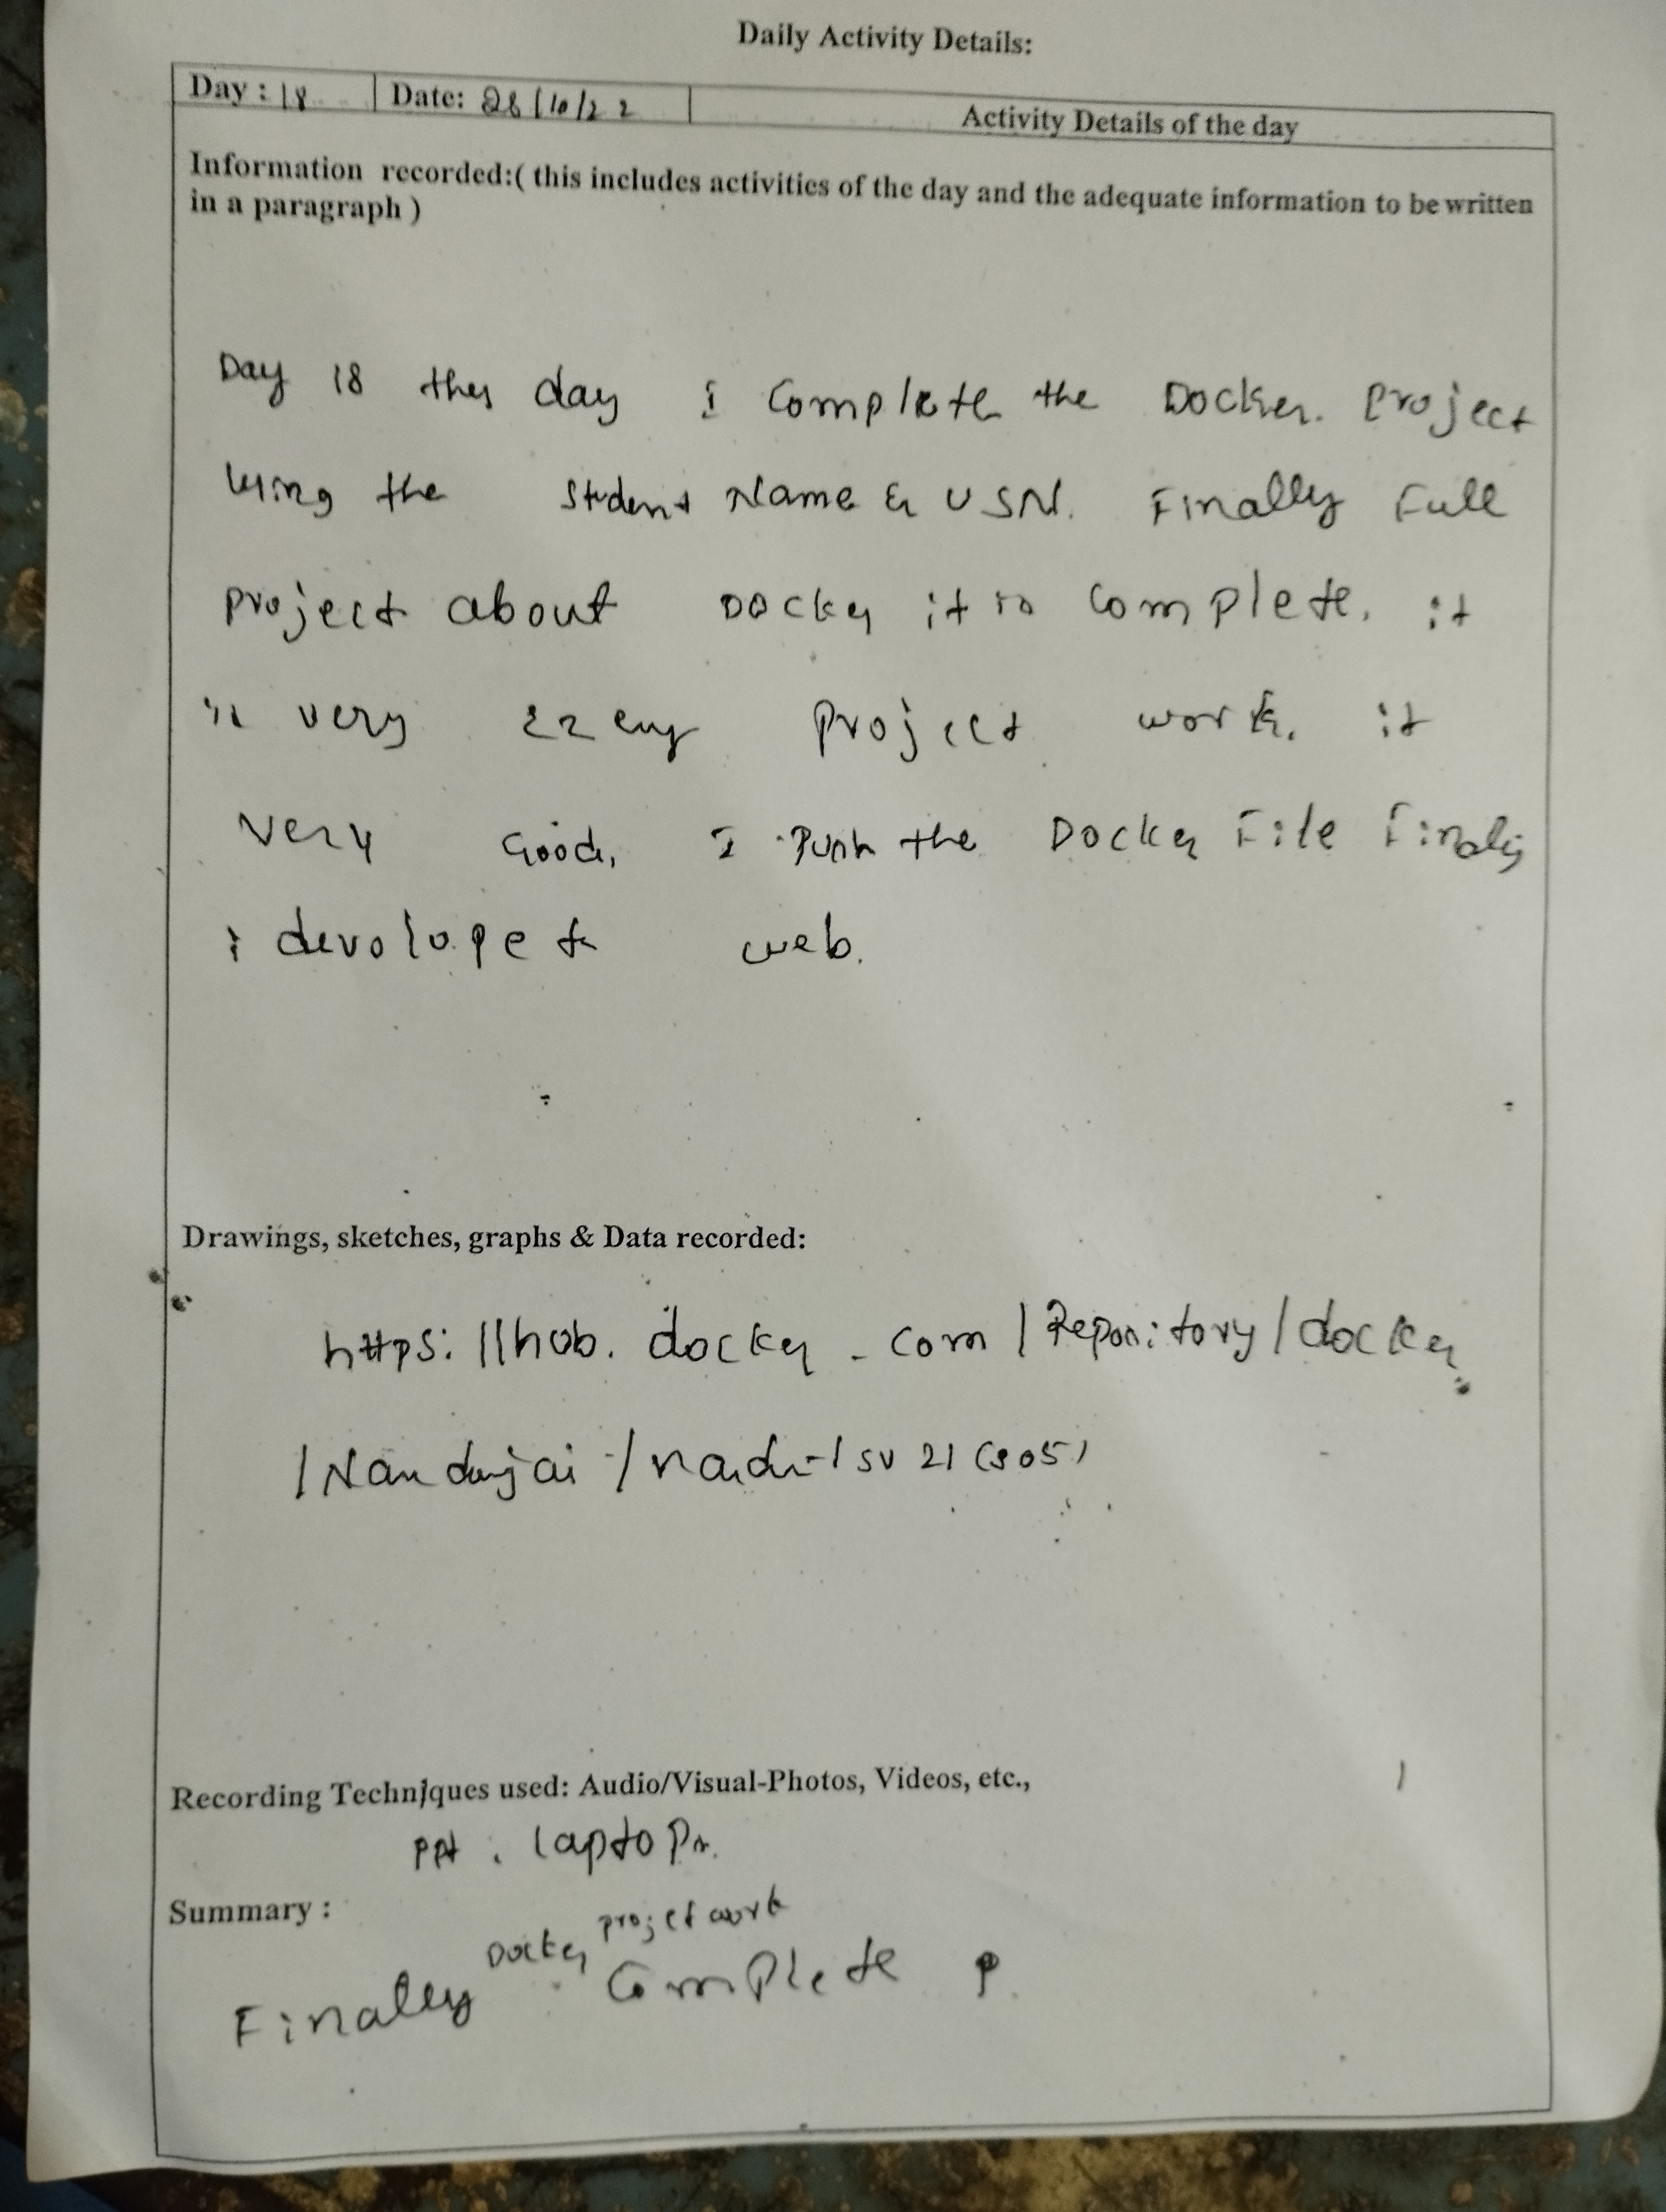 Daily Activity Details:
Day : 18 Date: 28/10/22 Activity Details of the day
Information recorded:( this includes activities of the day and the adequate information to be written
in a paragraph )
Day 18 this day i Complete the Docker. Project
using the Student Name & USN. Finally Full
project about Docker it is Complete. it
is very project work. it
very Good, I Push the Docker File Finally
i devolope to web.
Drawings, sketches, graphs & Data recorded:
https://hub.docker.com/Repository/docker
/Nandujai/
Recording Techniques used: Audio/Visual-Photos, Videos, etc.,
PPt. laptops.
Summary :
Docker projet work
Finally Complete